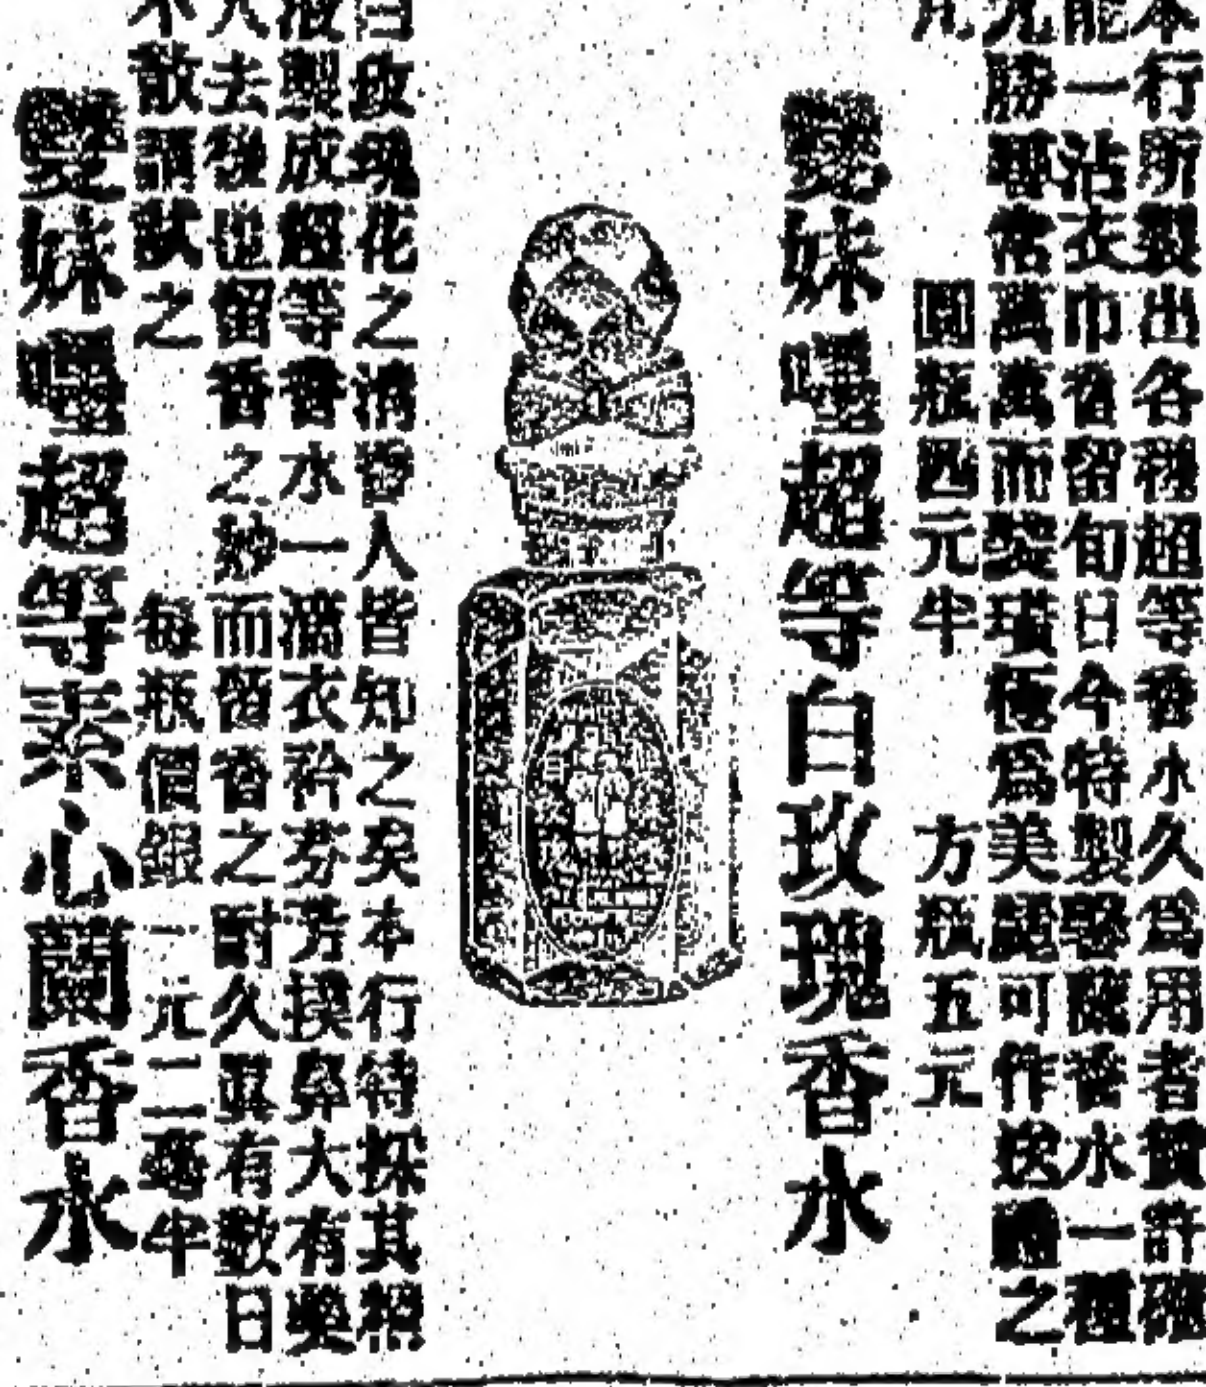 本行所製出各種超等香水久為用者贊許確
能一沾衣巾香留旬日今特製 香水一種
尤勝尋常萬萬而裝璜極為美麗可作送禮之
圓瓶四元半　方瓶五元
雙妹嚜超等白玫瑰香水
白玫瑰花之清香人皆知之矣本行特採其
液製成超等香水一滴衣衿芬芳撲鼻大有
人去後猶留香之妙而留香之耐久眞有數日
不散
每瓶價銀一元二毫半
雙妹嚜超等素心蘭香水